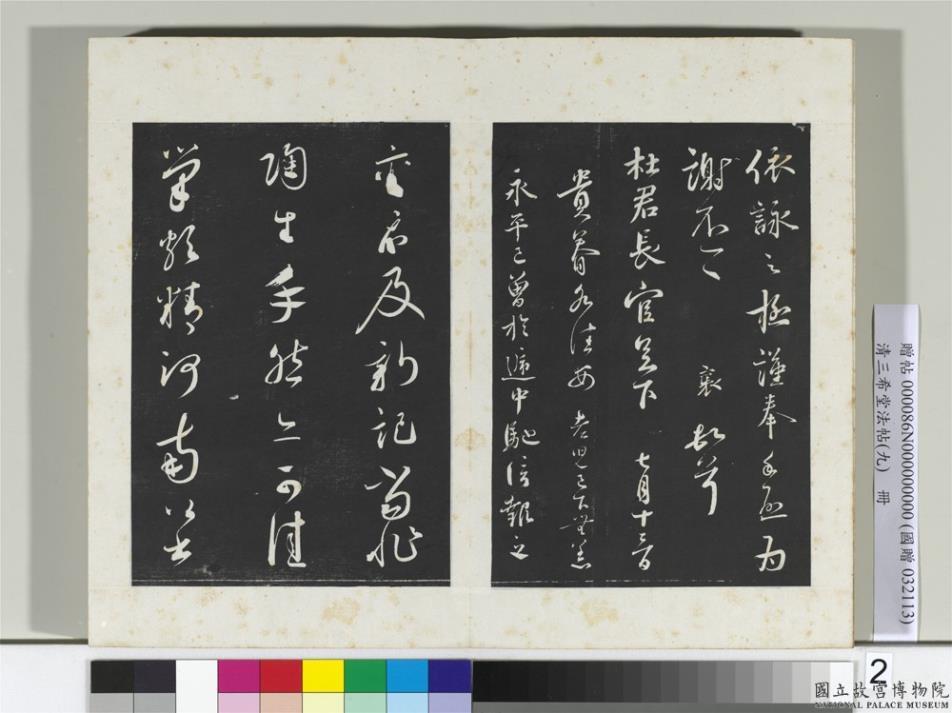 依詠之極謹奉手啟為
謝不一一 襄頓首
杜君長官足下 七月十三日
貴眷各佳安 老兒已下無恙
永平已曾於遞中馳信報之
示及新記當非
陶生手然亦可佳
筆頗精河南公書
贈帖 000086N000000000 (國贈 032113)
清三希堂法帖(九) 冊
2
國立故宮博物院
NATIONAL PALACE MUSEUM